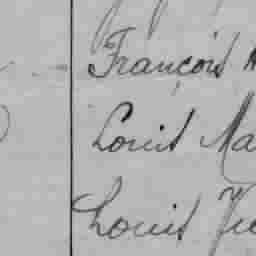 François
Louis Ma
Louis